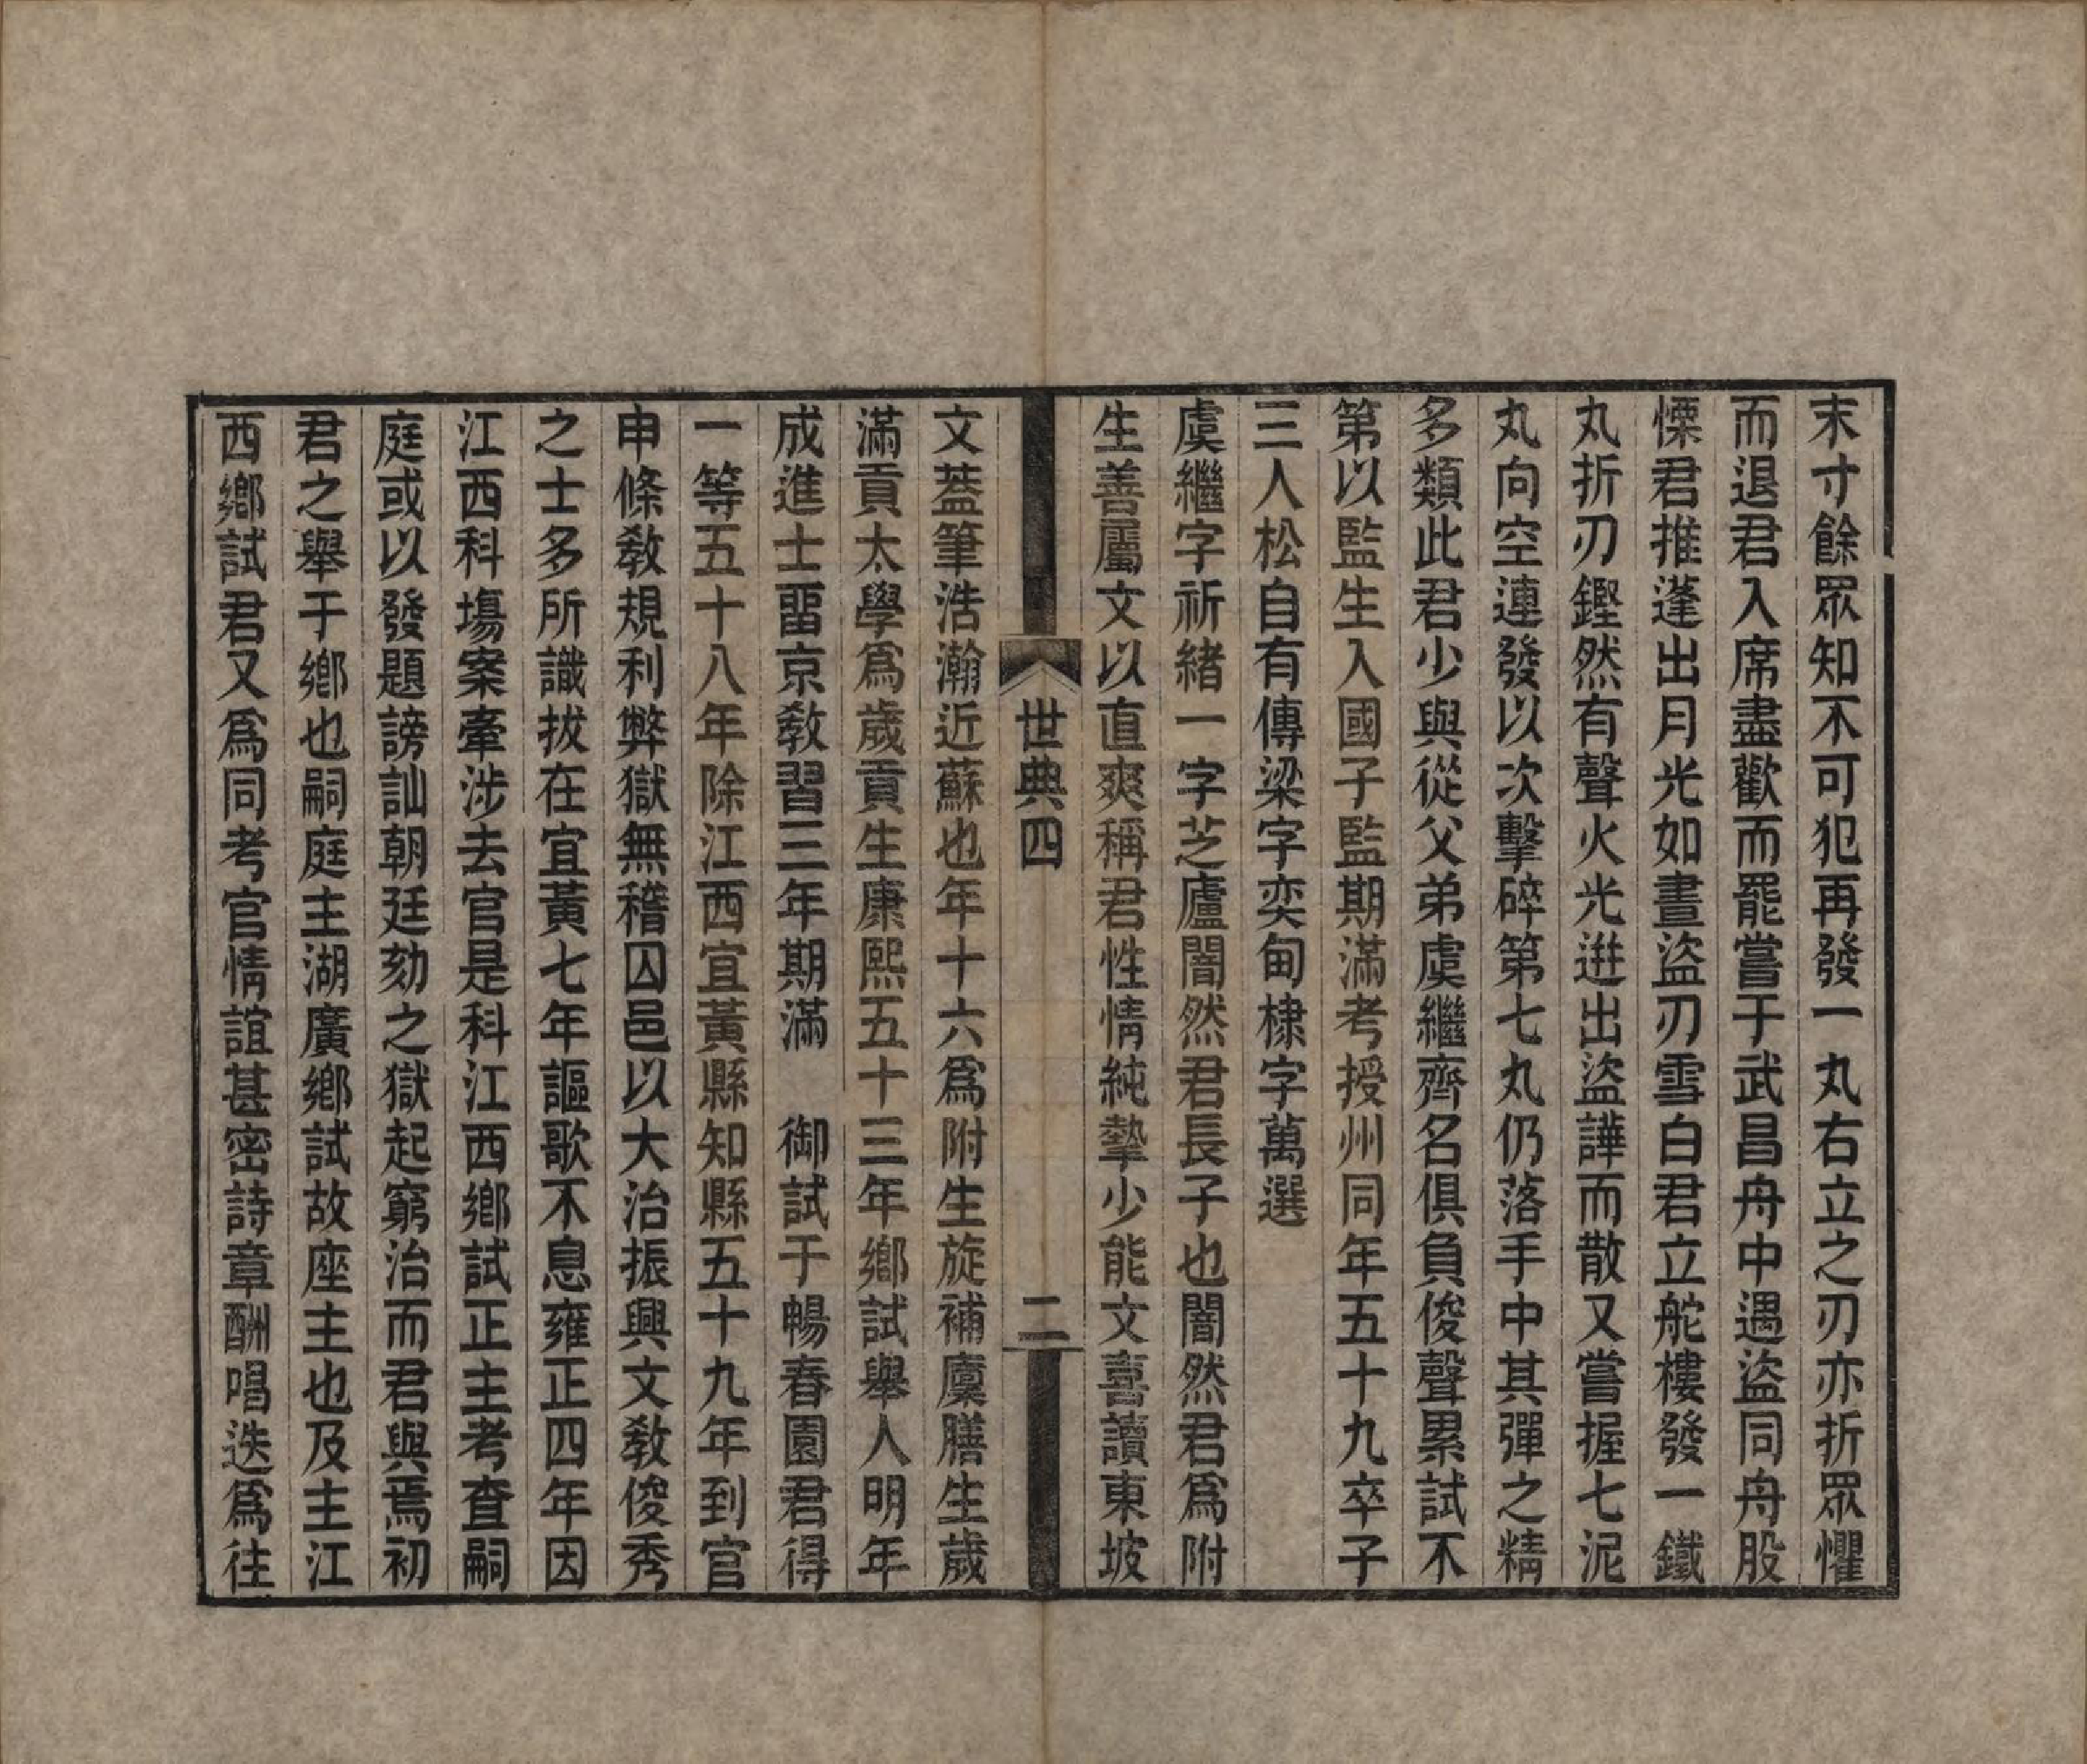 末寸餘眾知不可犯再發一丸右立之刃亦折眾懼
而退君入席盡歡而罷嘗于武昌舟中遇盜同舟股
慄君推蓬出月光如晝盜刃雪白君立舵樓發一鐵
丸折刃鏗然有聲火光迸出盜譁而散又嘗握七泥
丸向空連發以次擊碎第七丸仍落手中其彈之精
多類此君少與從父弟虞繼齊名俱負俊聲累試不
第以監生入國子監期滿考授州同年五十九卒子
三人松自有傳梁字奕甸棣字萬選
虞繼字祈緒一字芝廬闇然君長子也闇然君為附
生善屬文以直爽稱君性情純摯少能文喜讀東坡
世典四
二
文葢筆浩瀚近蘇也年十六為附生旋補廩膳生歲
滿貢太學為歲貢生康熙五十三年鄉試舉人明年
成進士畱京教習三年期滿　御試于暢春園君得
一等五十八年除江西宜黃縣知縣五十九年到官
申條教規利弊獄無稽囚邑以大治振興文教俊秀
之士多所識拔在宜黃七年謳歌不息雍正四年因
江西科場案牽涉去官是科江西鄉試正主考查嗣
庭或以發題謗訕朝廷劾之獄起窮治而君與焉初
君之舉于鄉也嗣庭主湖廣鄉試故座主也及主江
西鄉試君又為同考官情誼甚密詩章酬唱迭為往